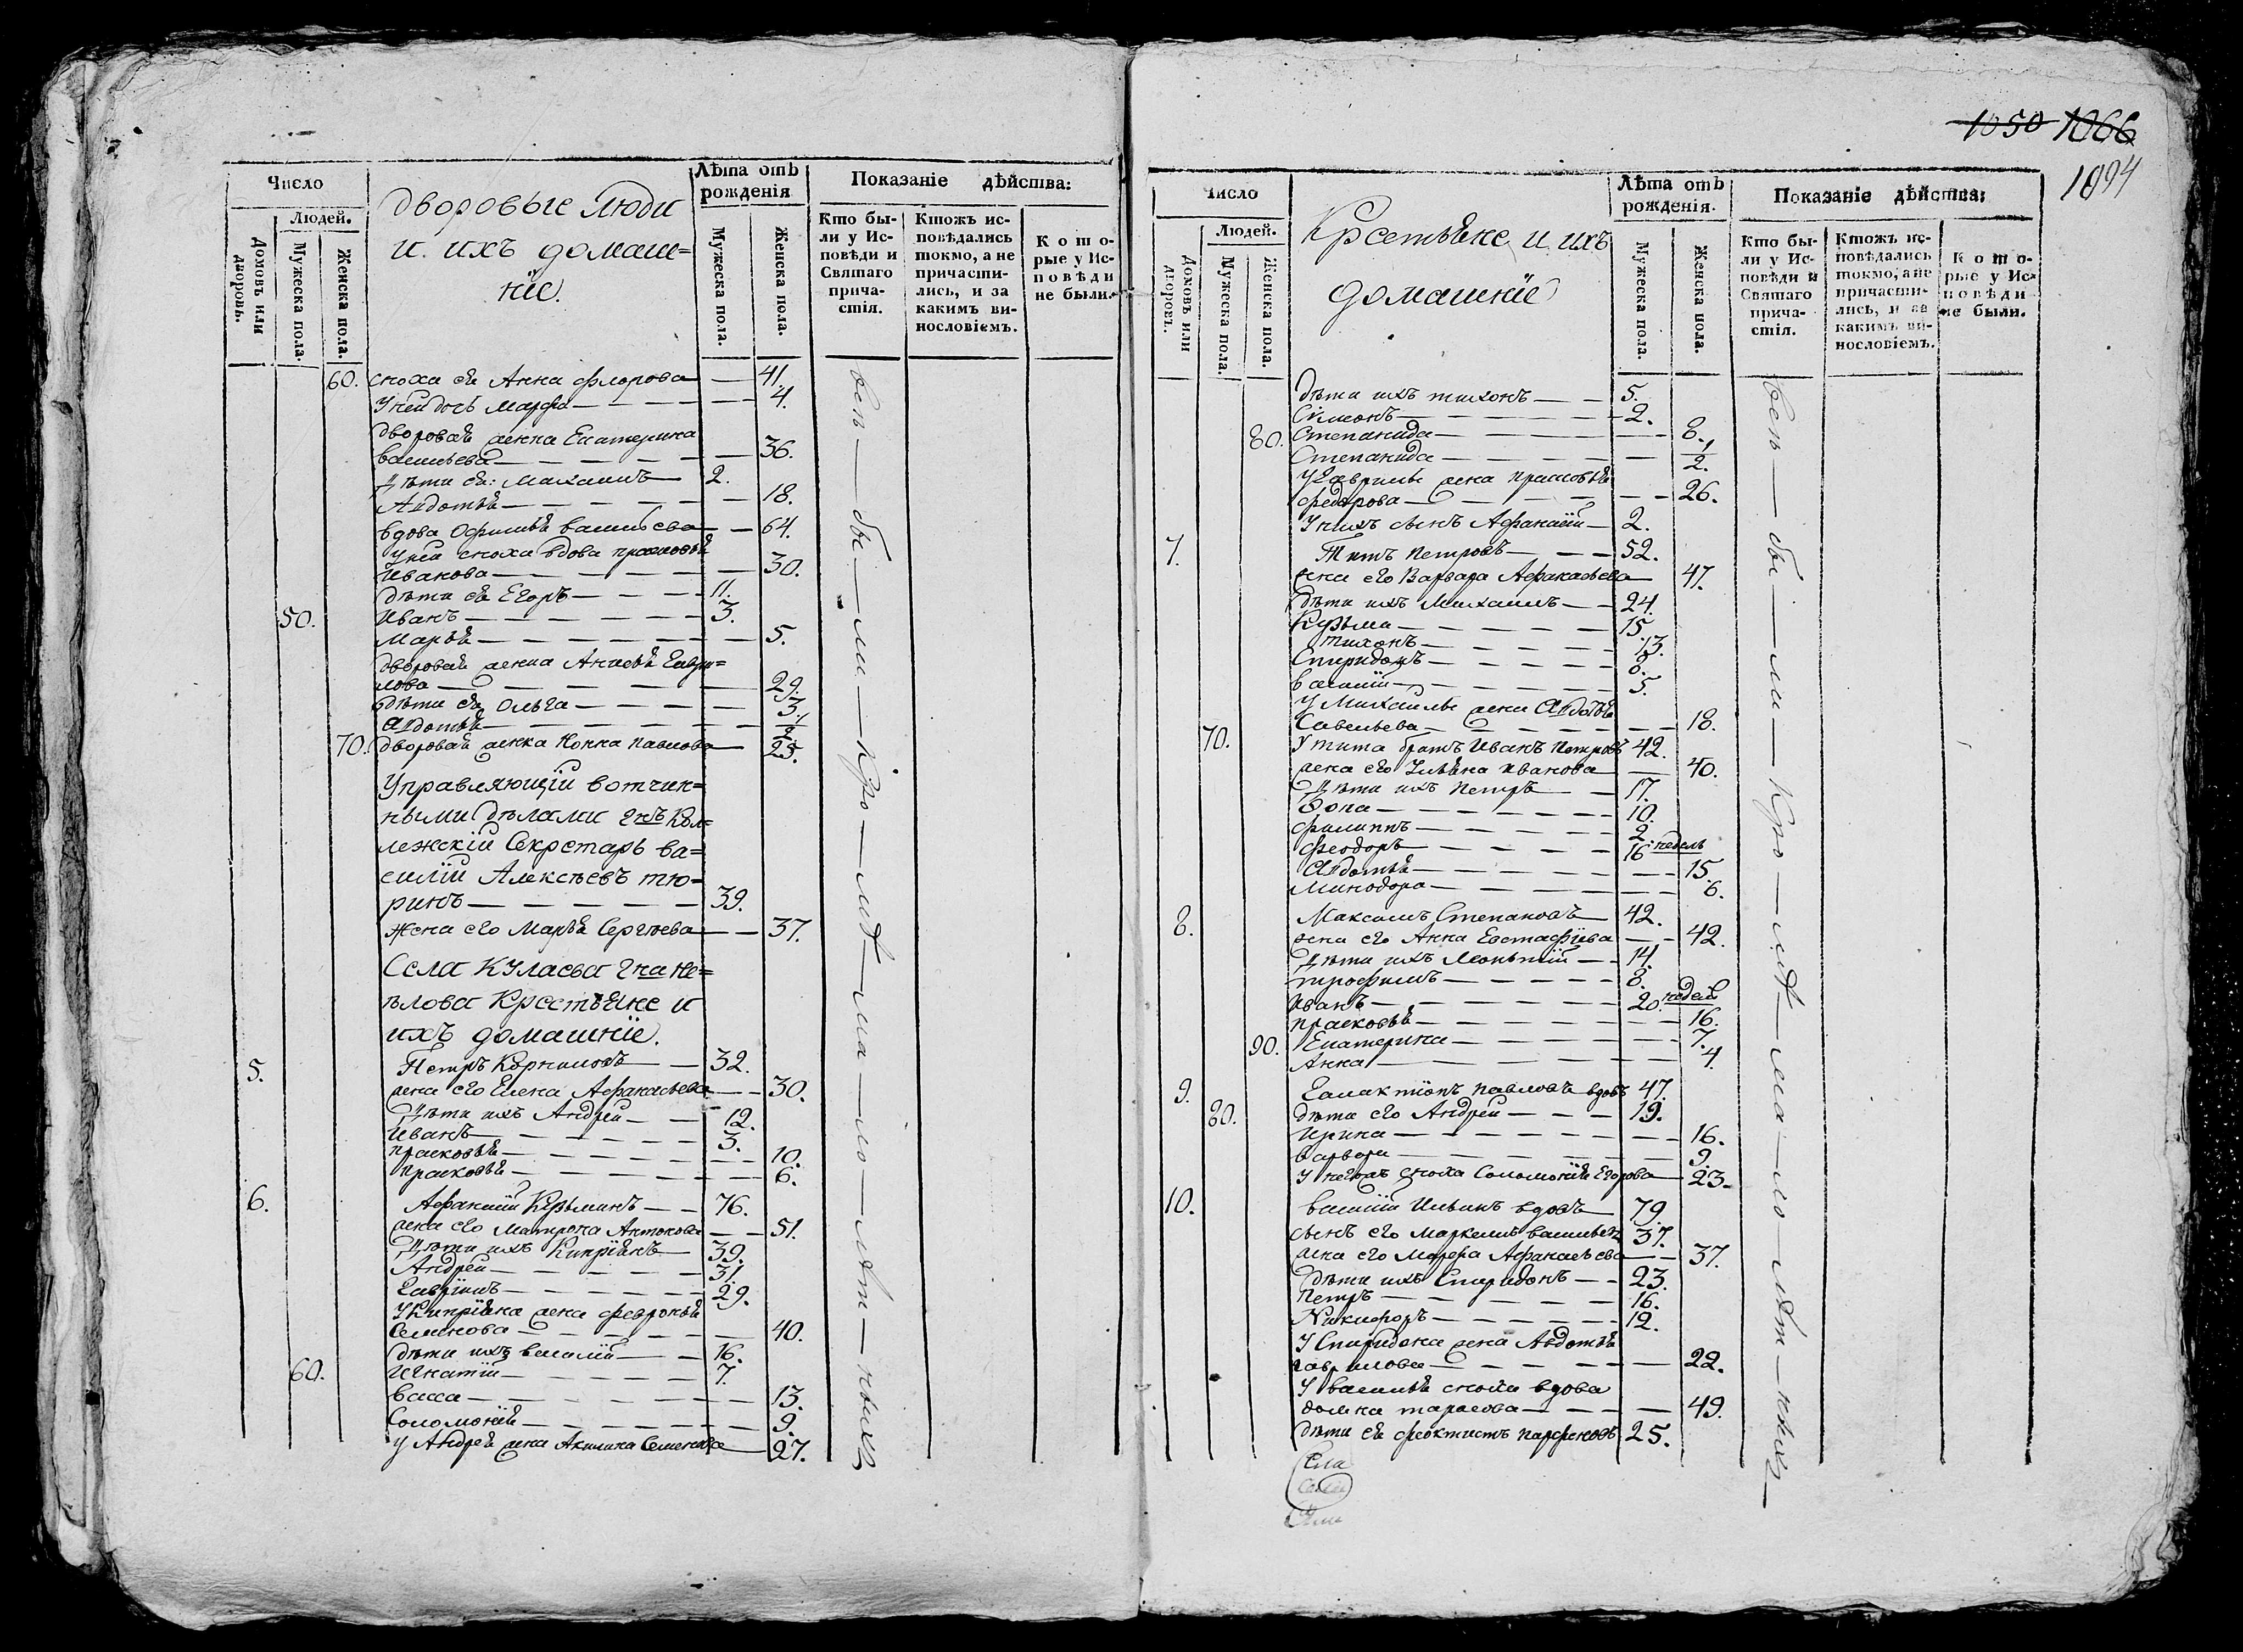 Число
Людей.
Домовъ или дворовъ.
Мужеска пола.
Женска пола.
дворовые люди
и ихъ домаш=
ніе.
Лѣта отъ
рожденія
Мужеска пола.
Женска пола.
Показаніе дѣйства:
Кто бы-
ли у Ис-
повѣди и
Святаго
прича-
стія.
Ктожъ ис-
повѣдались
токмо, а не
причасти-
лись, и за
какимъ ви-
нословіемъ.
К о т о-
рые у Ис-
п о в ѣ д и
не были.
60. сноха ея Анна Флорова — 41.
У ней дочь Марфа — 4.
дворовая женка Екатерина
васильева — 36.
Дѣти ея: Михаилъ — 2.
Авдотья — 18.
вдова Офимья васильева — 64.
У ней сноха вдова прасковья
Иванова — 30.
дѣти ея Егоръ — 11.
50. Иванъ — 3.
Марья — 5.
дворовая женка Анисья Гаври=
лова — 29.
дѣти ея Ольга — 3.
Авдотья — 1/2.
70. дворовая женка Нонна павлова — 25.
Управляющій вотчин=
ными дѣлами Гнъ Кол=
лежскій Секретарь ва=
силій Алексѣевъ тю=
ринъ — 39.
Жена его Марья Сергѣева — 37.
Села Кулаева Гна Не=
ѣлова Крестьяне и
ихъ домашніе.
5. Петръ Корниловъ — 32.
жена его Елена Афанасьева — 30.
Дѣти ихъ Андрей — 12.
Иванъ — 3.
прасковья — 10.
прасковья — 6.
6. Афанасій Кузьминъ — 76.
жена его Матрона Антонова — 51.
Дѣти ихъ Кипріянъ — 39.
Андрей — 31.
Гавріилъ — 29.
У Кипріяна жена февронья
Семенова — 40.
дѣти ихъ василій — 16.
60. Игнатій — 7.
васса — 13.
Соломонія — 9.
У Андрея жена Акилина Семенова — 27.
всѣ — бы — ли — Кро — мѣ — ма — ло — лѣт — ныхъ
1050 1066
1094
Число
Людей.
Домовъ или дворовъ.
Мужеска пола.
Женска пола.
Крестьяне и ихъ
домашніе
Лѣта отъ
рожденія.
Мужеска пола.
Женска пола.
Показаніе дѣйства:
Кто бы-
ли у Ис-
повѣди и
Святаго
прича-
стія.
Ктожъ ис-
повѣдались
токмо, а не
причасти-
лись, и за
какимъ ви-
нословіемъ.
К о т о-
рые у Ис-
п о в ѣ д и
не были.
дѣти ихъ тихонъ — 5.
Симонъ — 2.
80. Степанида — 8.
Степанида — 1/2.
У Гаврилы жена прасковья
федорова — 26.
У нихъ сынъ Афанасій — 2.
7. Титъ петровъ — 52.
жена его Варвара Афанасьева — 47.
дѣти ихъ Михаилъ — 24.
Кузьма — 15.
тихонъ — 13.
Спиридонъ — 8.
василій — 5.
У Михайлы жена Авдотья
Савельева — 18.
70. У тита братъ Иванъ петровъ 42.
жена его Ульяна Иванова — 40.
Дѣти ихъ петръ — 17.
Фока — 10.
филиппъ — 2.
феодоръ — 16 недель
Авдотья — 15.
Минодора — 6.
8. Максимъ Степановъ — 42.
жена его Анна Евстафіева — 42.
Дѣти ихъ Леонтій — 14.
трофимъ — 8.
Иванъ — 20. недель
прасковья — 16.
90. Екатерина — 7.
Анна — 4.
9. Галактіонъ павловъ вдовъ 47.
80. дѣти его Андрей — 19.
Ирина — 16.
варвара — 9.
У негожъ сноха Соломонія Егорова — 23.
10. василій Ильинъ вдовъ — 79.
сынъ его Маркелъ васильевъ 37.
жена его Марфа Афанасьева — 37.
дѣти ихъ Спиридонъ — 23.
Петръ — 16.
Никифоръ — 12.
У Спиридона жена Авдотья
гаврилова — 22.
У василья сноха вдова
домна тарасова — 49.
дѣти ея феоктистъ парфеновъ 25.
всѣ — бы — ли — Кро — мѣ — ма — ло — лѣт — ныхъ
Села